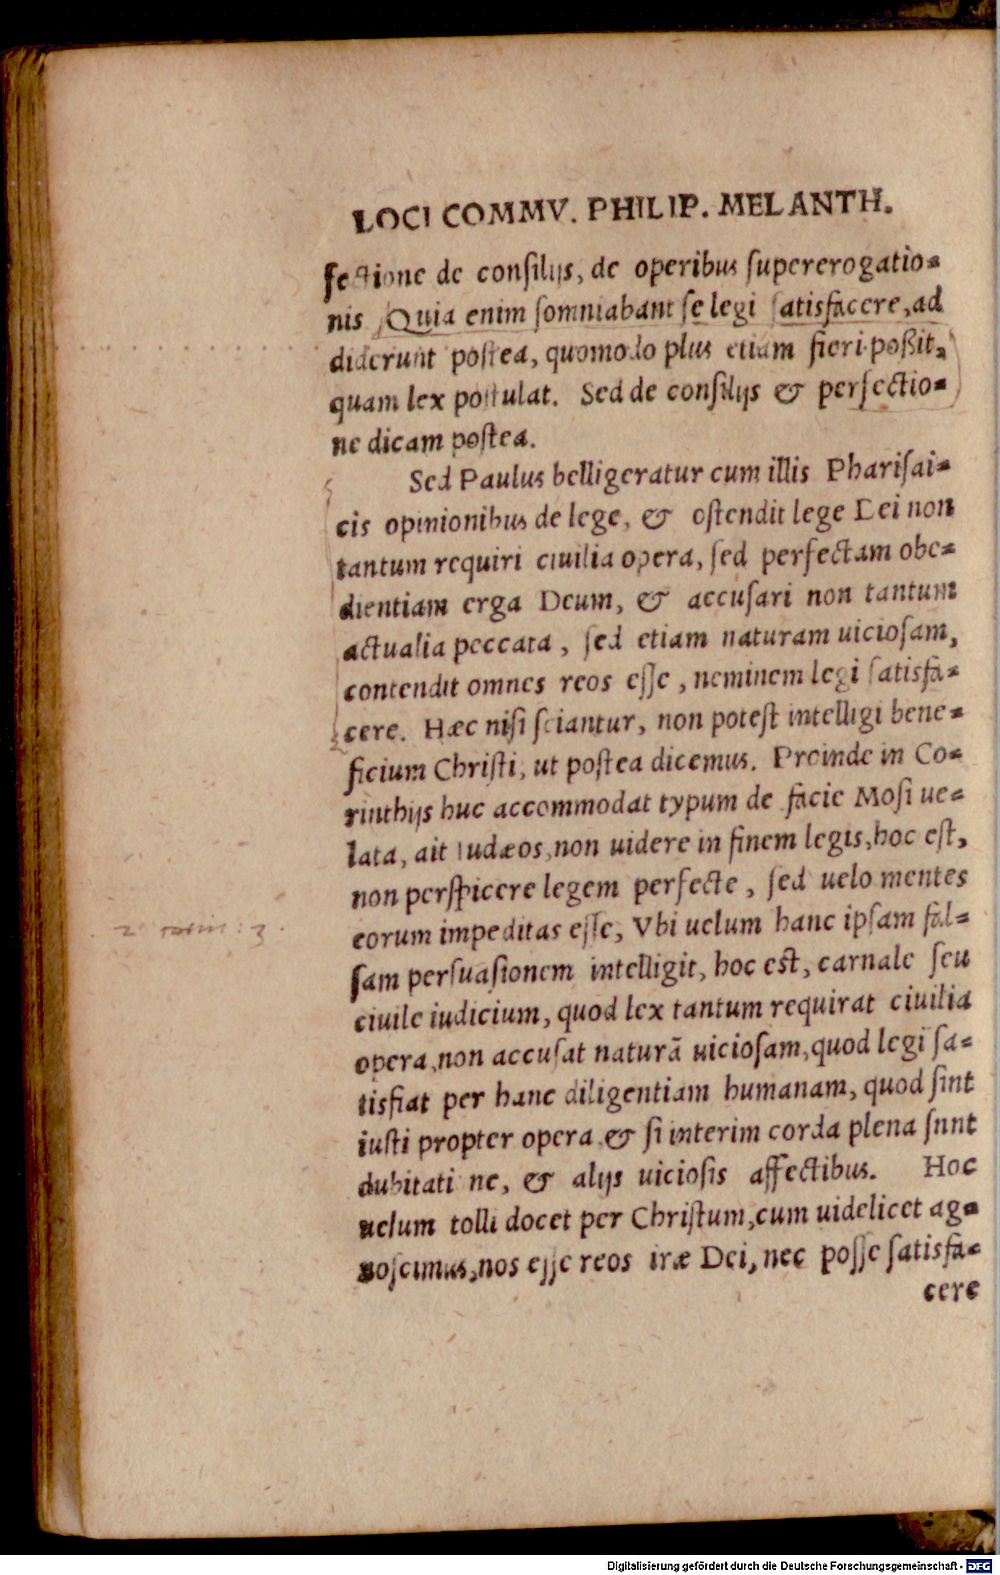 LOCI COMMV. PHILIP. MELANTH.
fectione de consilijs, de operibus supererogatio=
nis Quia enim somniabant se legi satisfacere, ad
diderunt postea, quomodo plus etiam fieri possit,
quam lex postulat. Sed de consilijs & perfectio=
ne dicam postea.
Sed Paulus belligeratur cum illis Pharisai=
cis opinionibus de lege, & ostendit lege Dei non
tantum requiri ciuilia opera, sed perfectam obe=
dientiam erga Deum, & accusari non tantum
actualia peccata, sed etiam naturam uiciosam,
contendit omnes reos esse, neminem legi satisfa=
cere. Hæc nisi sciantur, non potest intelligi bene=
ficium Christi, ut postea dicemus. Proinde in Co=
rinthijs huc accommodat typum de facie Mosi ue=
lata, ait Iudæos, non uidere in finem legis, hoc est,
non perspicere legem perfecte, sed uelo mentes
2 corin: 3.
eorum impeditas esse, Vbi uelum hanc ipsam fal=
sam persuasionem intelligit, hoc est, carnale seu
ciuile iudicium, quod lex tantum requirat ciuilia
opera, non accusat naturã uiciosam, quod legi sa=
tisfiat per hanc diligentiam humanam, quod sint
iusti propter opera & si interim corda plena snnt
dubitati ne, & alijs uiciosis affectibus. Hoc
uelum tolli docet per Christum, cum uidelicet ag=
noscimus, nos esse reos iræ Dei, nec posse satisfa=
cere
Digitalisierung gefördert durch die Deutsche Forschungsgemeinschaft - DFG